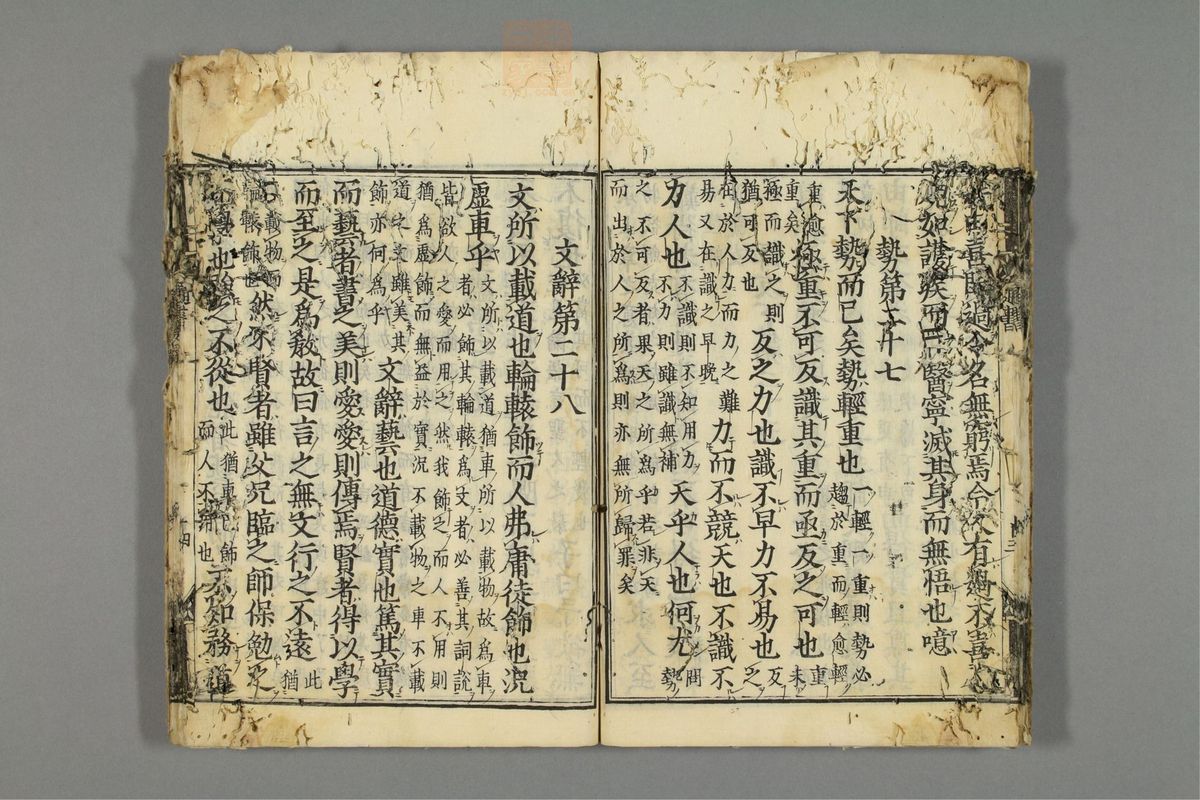 喜聞過令名無窮焉今人有過不喜人
規如護疾而忌醫寧滅其身而無悟也噫
勢第二十七
天下勢而已矣勢輕重也
一輕一重則勢必
趨於重而輕愈輕
重愈
重矣
極重不可反識其重而亟反之可也
重
未
極而識之則
猶可反也
反之力也識不早力不易也
反
之
在於人力而力之難
易又在識之早晚
力而不競天也不識不
力人也
不識則不知用力
不力則雖識無補
天乎人也何尤
問
勢
之不可反者果天之所爲乎若非天
而出於人之所爲則亦無所歸罪矣
文辭第二十八
文所以載道也輪轅飾而人弗庸徒飾也況
虛車乎
文所以載道猶車所以載物故爲車
者必飾其輪轅爲文者必善其詞說
皆欲人之愛而用之然我飾之而人不用則
猶爲虛飾而無益於實況不載物之車不載
道之文雖美其
飾亦何爲乎
文辭藝也道德實也篤其實
而藝者書之美則愛愛則傳焉賢者得以學
而至之是爲教故曰言之無文行之不遠
此
猶
車載物而
輪轅飾也
然不賢者雖父兄臨之師保勉之
不學也強之不從也
此猶車已飾
而人不用也
不知務道